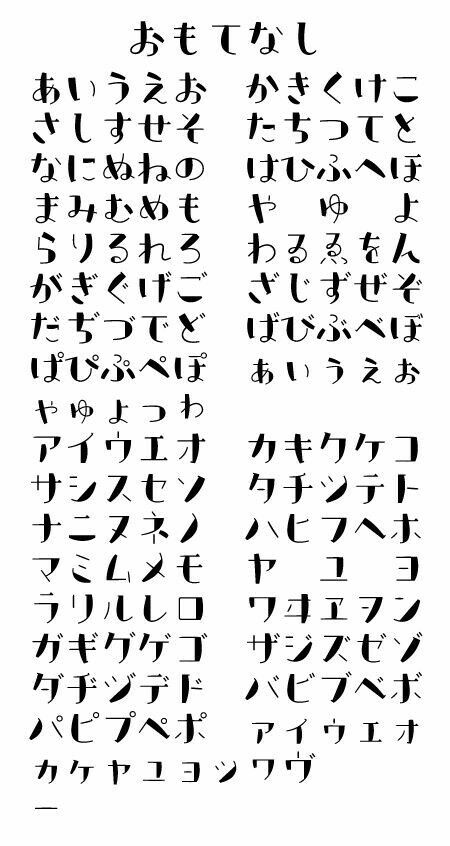 おもてなし
あいうえお　かきくけこ
さしすせそ　たちつてと
なにぬねの　はひふへほ
まみむめも　や　ゆ　よ
らりるれろ　わゐゑをん
がぎぐげご　ざじずぜぞ
だぢづでど　ばびぶべぼ
ぱぴぷぺぽ　ぁぃぅぇぉ
ゃゅょっゎ
アイウエオ　カキクケコ
サシスセソ　タチツテト
ナニヌネノ　ハヒフヘホ
マミムメモ　ヤ　ユ　ヨ
ラリルレロ　ワヰヱヲン
ガギグゲゴ　ザジズゼゾ
ダヂヅデド　バビブベボ
パピプペポ　ァィゥェォ
ヵヶャュョッヮヴ
ー